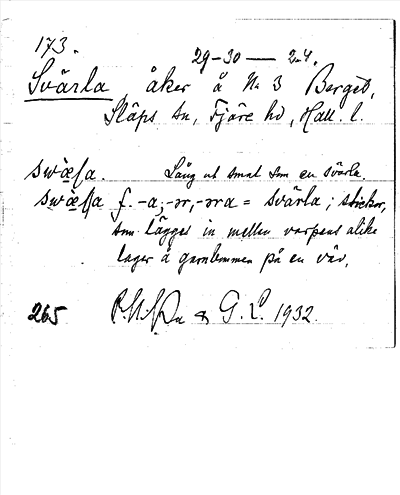 173.
29-30 — 2.4.
Svärla, åker å No 3 Berget,
Släps sn, Fjäre hd, Hall. l.
swὰɭa. Lång ut smal som en svärla.
swæ̀ɭa f. -a; -ər, -əra = svärla; stickor,
som lägges in mellan varpens olika
lager å garnbommen på en väv.
265 G. L. 1932.